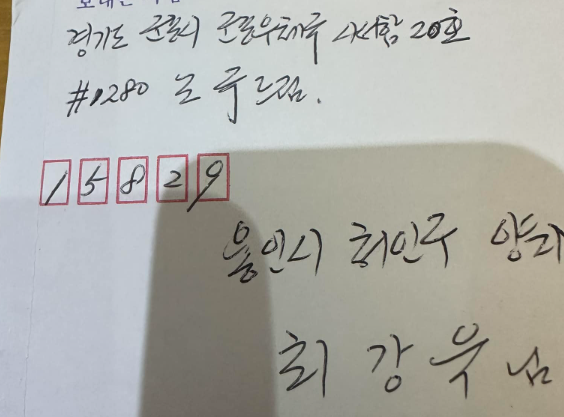 경기도 군포시 군포우체국 사서함 20호
#1280 드림.
15829
용인시 처인구 양지
최 강 욱 님